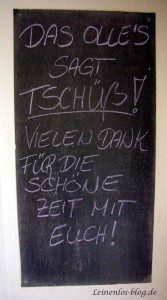 DAS OLLE'S
SAGT
TSCHÜß!
VIELEN DANK
FÜR DIE
SCHÖNE
ZEIT MIT
EUCH!
Leinenlos-blog.de